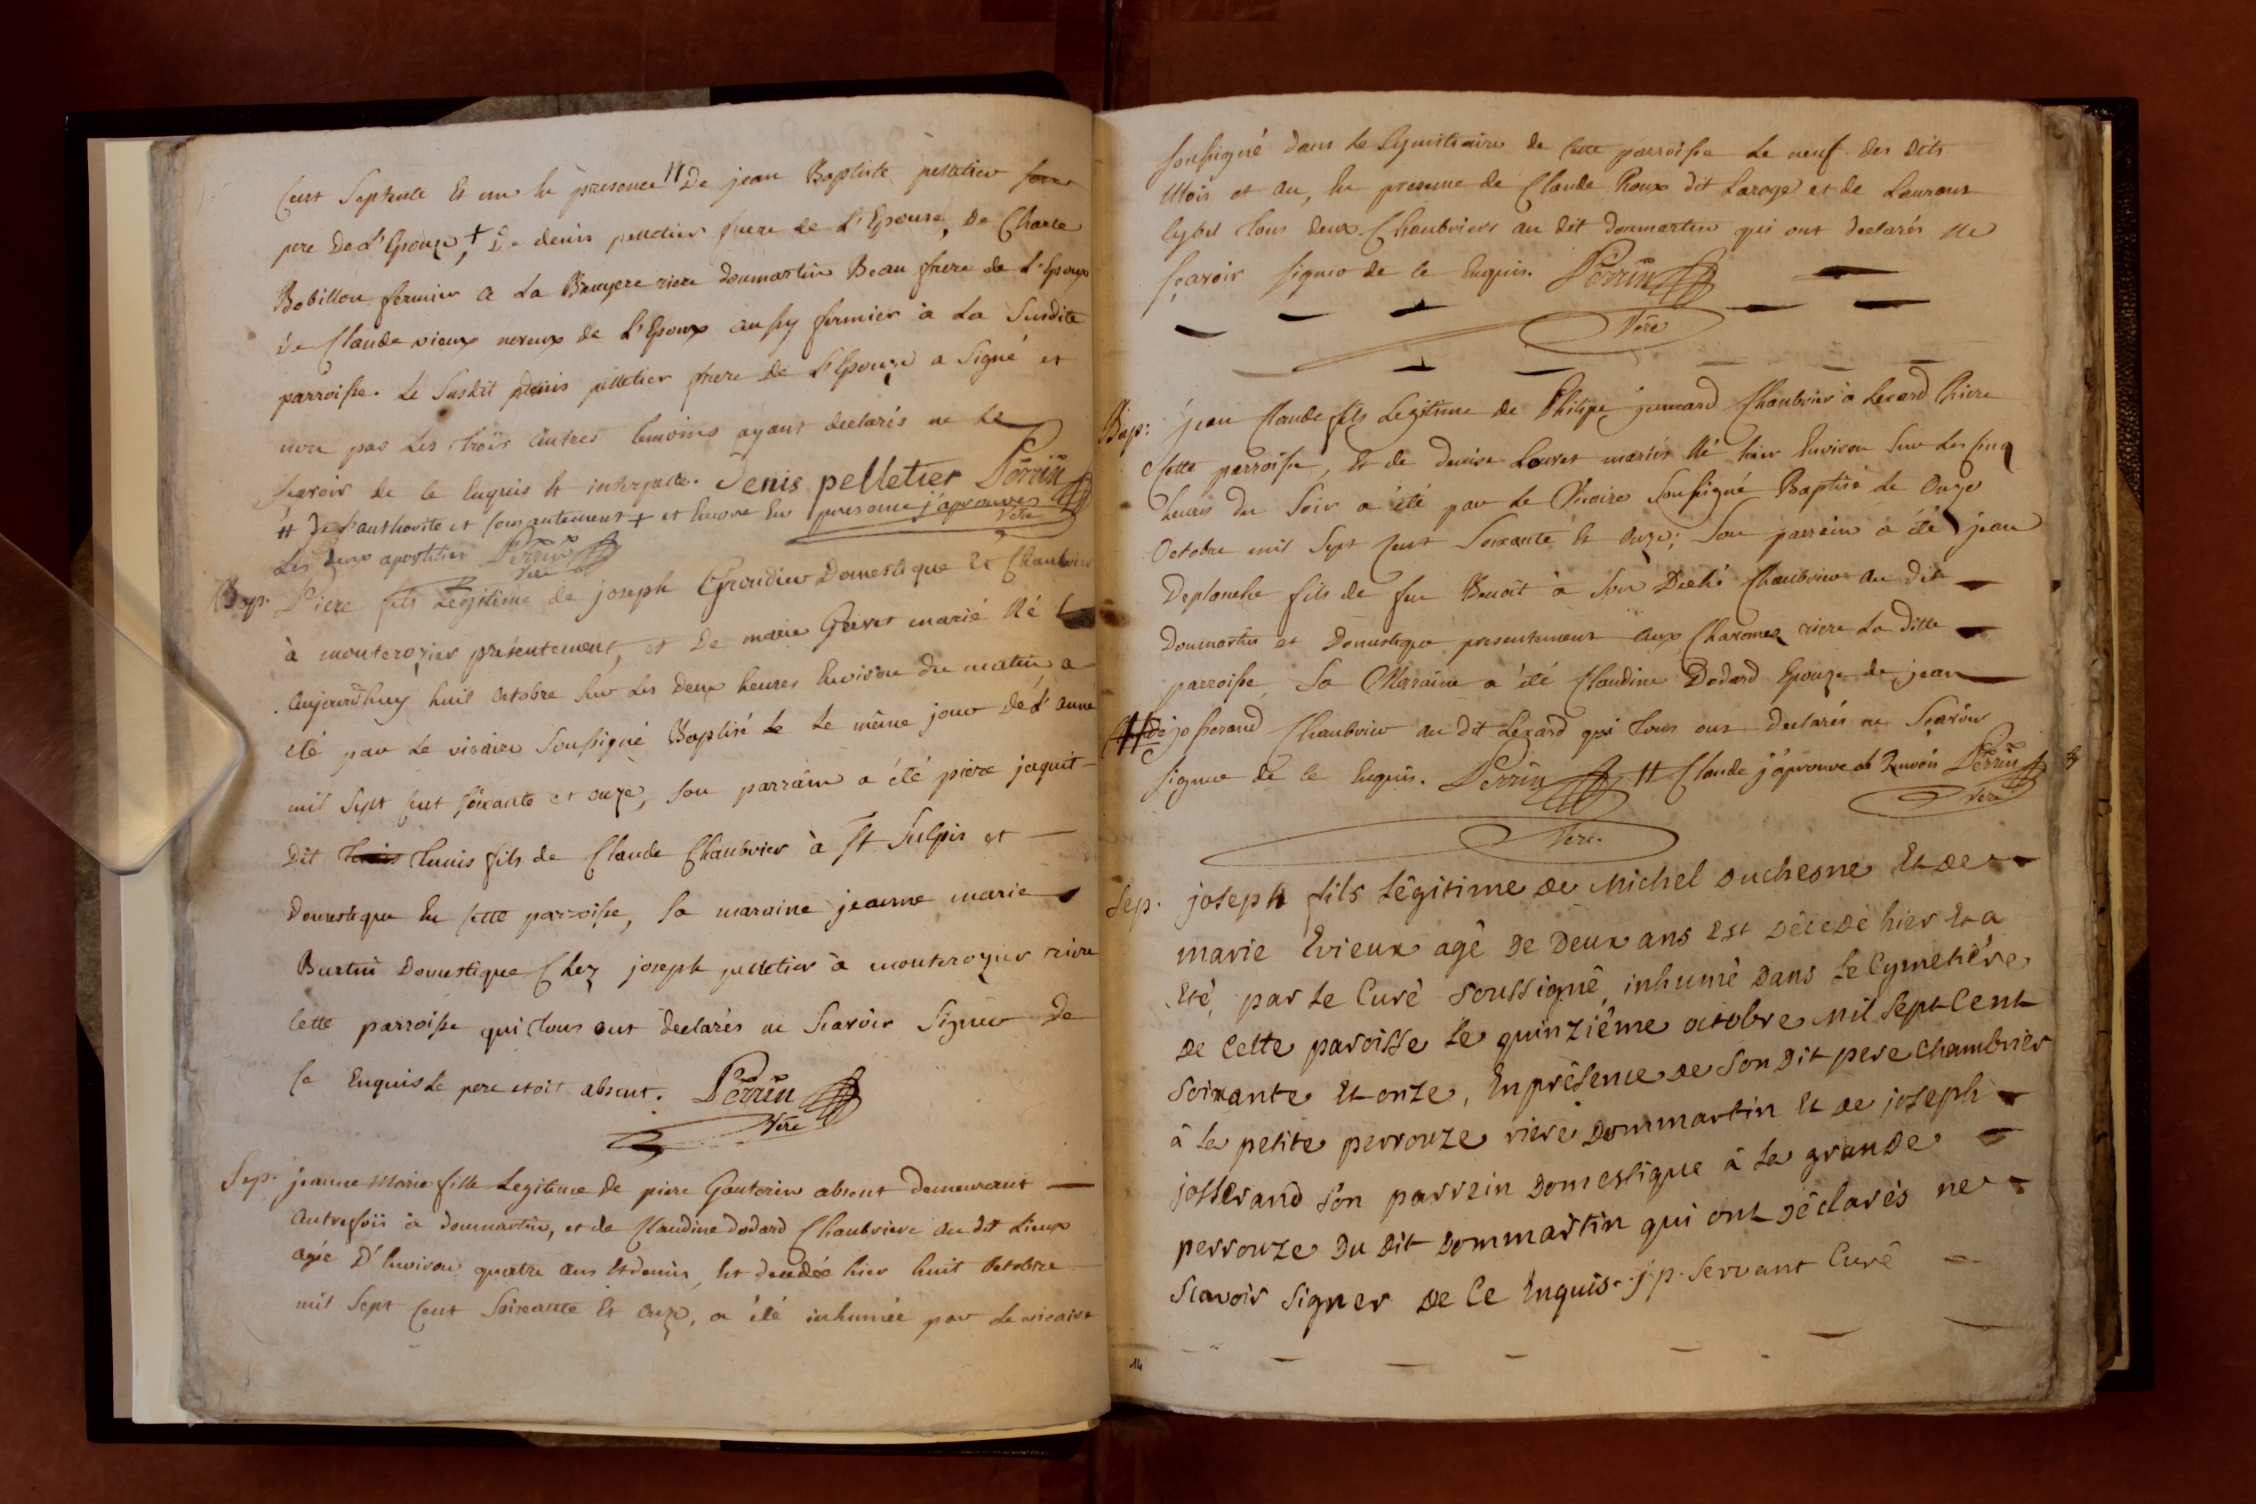 Cent Septente et un En presence # De jean Baptiste pelletier
pere De L'Epouze, + De denis pelletier frere de L'Epouse, De Charle
Bobillon fermier a La Bruyere riere dommartin Beau frere de L'Epoux
De Claude vieux neveux de L'Epoux aussy fermier à La Susdite
parroisse. Le Susdit denis pelletier frere de L'Epouze a Signé et
non pas Les trois autres temoins ayant declarés ne Le
Scavoir de ce Enquis et interpellé. Denis pelletier Perrin
# De L'authorite et Consentement + et Encore En presence j'aprouve
Vere
Les deux apostilles Perrin
Vere
Bap. Piere fils Legitime de joseph Grondier Domestique et Chambrier
à monterozier présentement, et De marie Grivet marié Né
aujourd'huy huit octobre Sur Les Deux heures Environ du matin, a
eté par Le vicaire Soussigné Baptisé Le Le même jour De L'anné
mil Sept Cent Soixante et onze, Son parrain a été piere jaquit
Dit Thunis fils de Claude Chambrier à St Sulpis et
Domestique En Cette parroisse, Sa maraine jeanne marie
Burtin Domestique Chez joseph pelletier à monterozier riere
Cette parroisse qui tous ont declarés ne Scavoir Signer De
Ce Enquis Le pere etoit absent. Perrin
Vere
Sep. jeanne Marie fille Legitime de piere Gauterin absent Demeurant
autrefois à dommartin, et de Claudine Dodard Chambriere au dit Lieux
agée D'Environ quatre ans et demis, Est decedée hier huit octobre
mil Sept Cent Soixante et onze, a été inhumée par Le vicaire
Soussigné dans Le Cymitiaire de Cette parroisse Le neuf des dits
Mois et an, En presence de Claude Roux dit Laroze et de Laurent
Cybel tous deux Chambriers au dit dommartin qui ont declarés Ne
Scavoir Signer de Ce Enquis. Perrin
Vere
Bap: jean Claude fils Legitime de Philipe jumard Chambrier à Lecard Riere
Cette parroisse, Et de denise Louvet mariés Né hier Environ Sur Les Cinq
heures du Soir a été par Le Vicaire Soussigné Baptisé Le Onze
Octobre mil Sept Cent Soixante Et Onze; Son parrain a été jean
Deplanche fils de feu Benoit à Son Decké Chambrier au dit
Dommartin et Domestique presentement aux Charomez riere La ditte
parroisse, Sa Maraine a été Claudine Dodard Epouze de jean
# josserand Chambrier au dit Lecard qui tous ont declarés ne Scavoir
Signer de Ce Enquis. Perrin # Claude j'aprouve Le Renvois Perrin
Vere
Vere
Sep. joseph fils Légitime de Michel duchesne Et de
marie Evieux agé de Deux ans est Décedé hier Et a
Eté, par Le Curé Soussigné, inhumé Dans Le Cymetiére
de Cette paroisse Le quinziéme octobre Mil Sept Cent
Soixante Et onze, En présence de Son Dit pere Chambrier
â La petite perrouze riere Dommartin Et de joseph
josserand Son parrein Domestique â La grande
perrouze Du dit Dommartin qui ont Déclarés ne
Scavoir Signer De Ce Enquis. j.p. Servant Curé
14